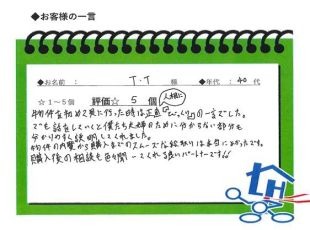 ◆お客様の一言
◆お名前： T.T 様 ◆年代：40代
☆1～5個 評価☆ 5 個
人相に
物件を初めて見に行った時は正直「びっくり」の一言でした。
でも話をしていくと僕たち夫婦のために分からない部分も
分かりやすく説明してくれました。
物件の内覧から購入までのスムーズな段取りは本当によかったです。
購入後の相談も色々聞いてくれる良いパートナーです!!